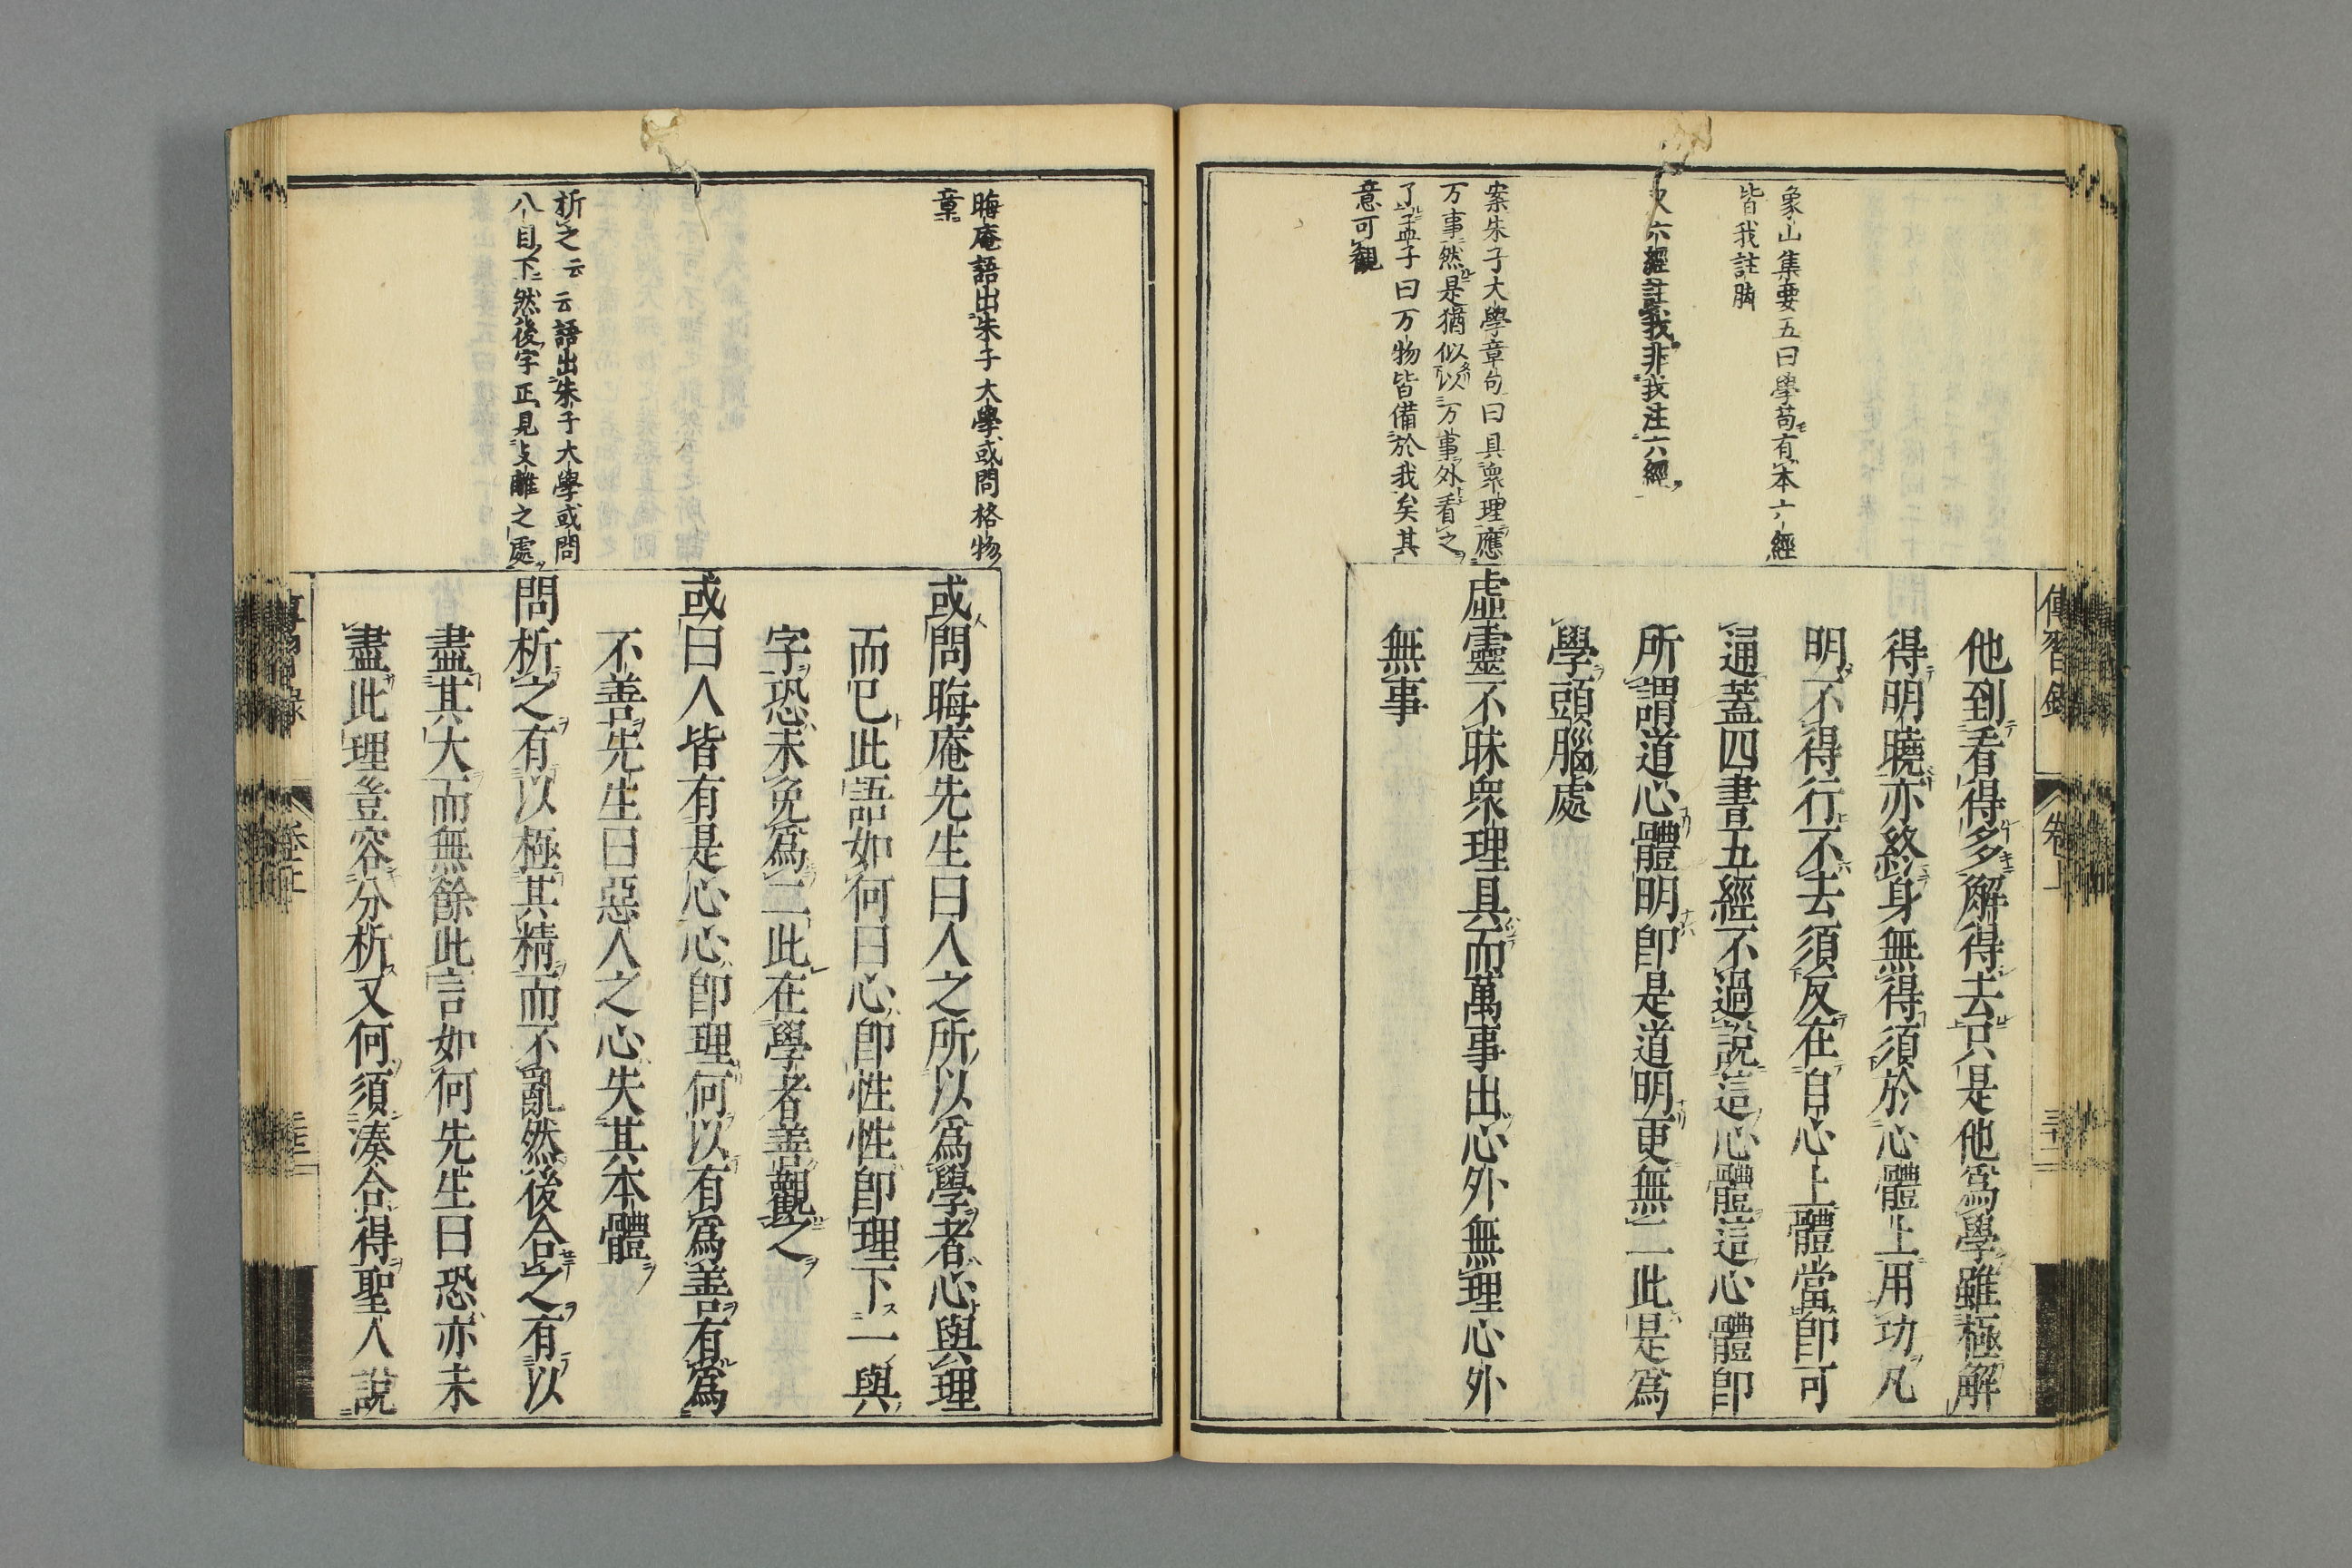 傳習録
卷上
象山集要五曰學苟有本六經
皆我註脚
六經註我非我注六經
案朱子大學章句曰具衆理應
万事然是猶似以万事外看之
了孟子曰万物皆備於我矣其
意可觀
他到看得多解得去只是他爲學雖極解
得明曉亦終身無得須於心體上用功凡
明不得行不去須反在自心上體當即可
通蓋四書五經不過說這心體這心體即
所謂道心體明即是道明更無二此是爲
學頭腦處
虛靈不昧衆理具而萬事出心外無理心外
無事
晦庵語出朱子大學或問格物
章
析之云云語出朱子大學或問
八目下然後字正見支離之處
或問晦庵先生曰人之所以爲學者心與理
而已此語如何曰心即性性即理下一與
字恐未免爲二此在學者善觀之
或曰人皆有是心心即理何以有爲善有爲
不善先生曰惡人之心失其本體
問析之有以極其精而不亂然後合之有以
盡其大而無餘此言如何先生曰恐亦未
盡此理豈容分析又何須湊合得聖人說